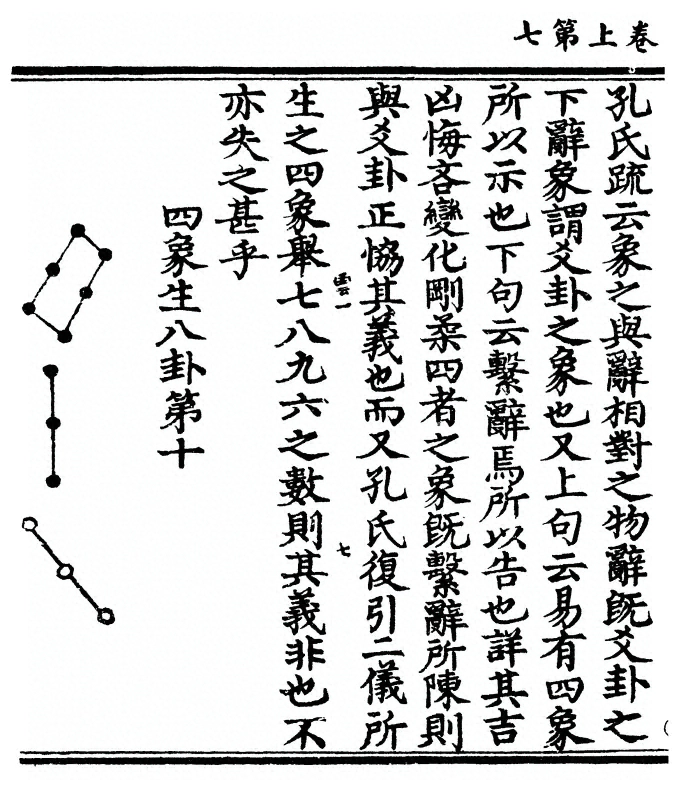 卷上第七
孔氏疏云象之與辭相對之物辭既爻卦之
下辭象謂爻卦之象也又上句云易有四象
所以示也下句云繫辭焉所以告也詳其吉
凶悔吝變化剛柔四者之象既繫辭所陳則
與爻卦正協其義也而又孔氏復引二儀所
生之四象舉七八九六之數則其義非也不
亦失之甚乎
四象生八卦第十